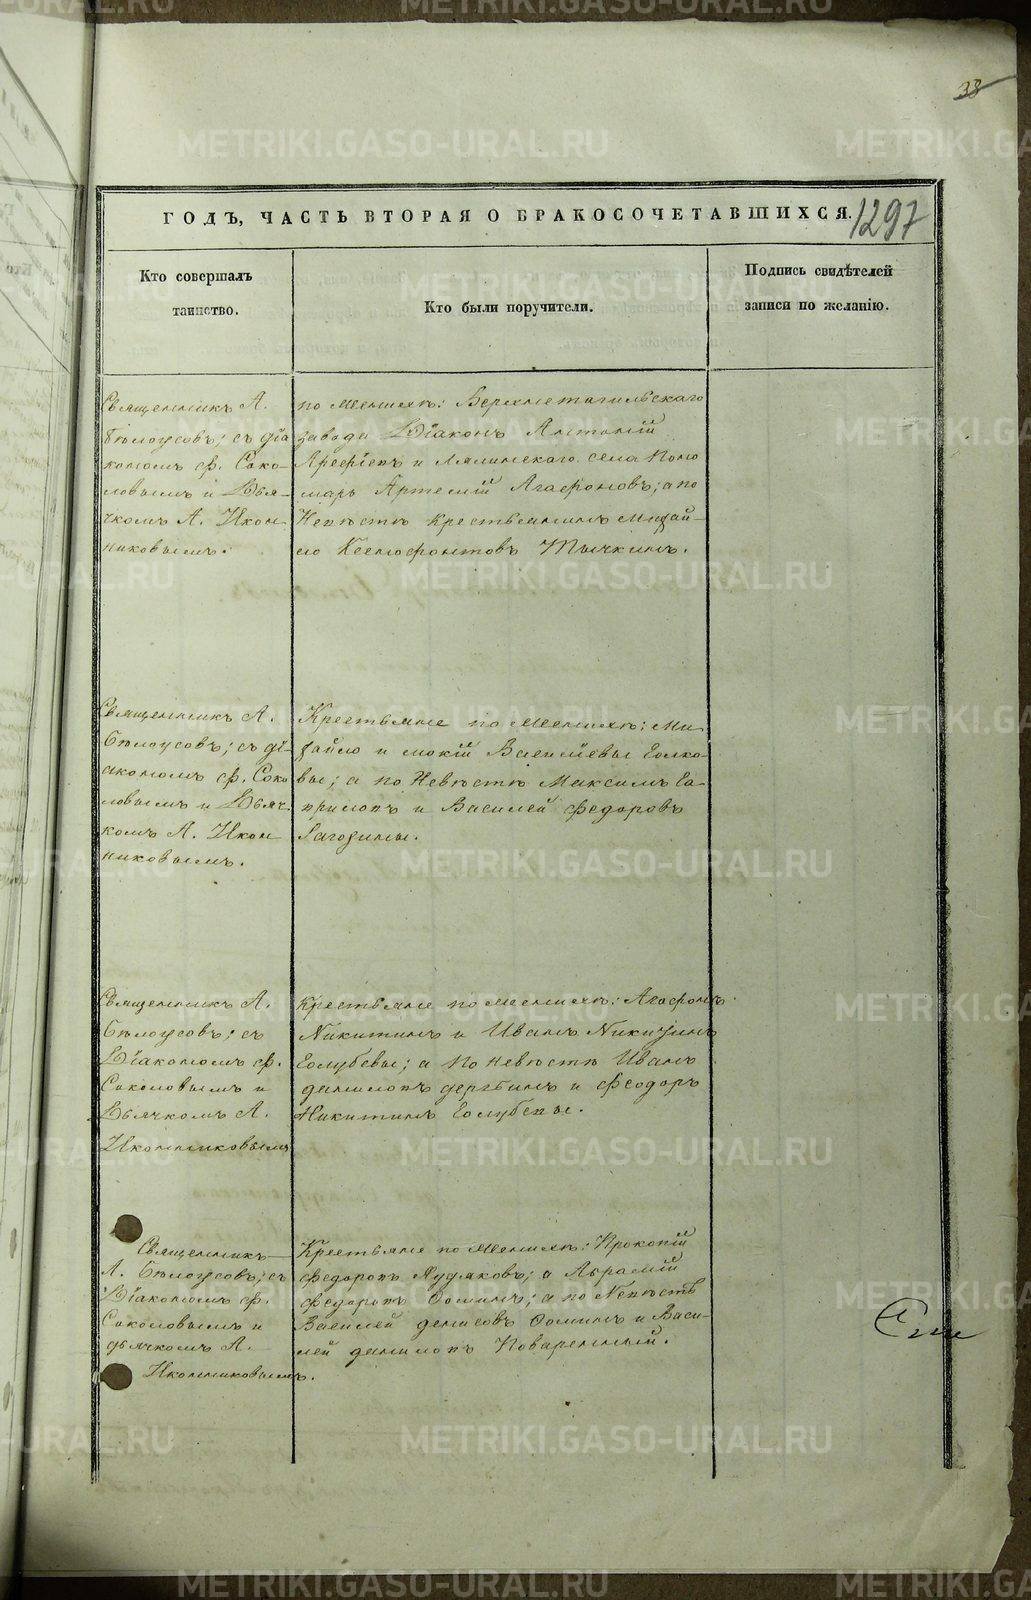 38
ГОДЪ, ЧАСТЬ ВТОРАЯ О БРАКОСОЧЕТАВШИХСЯ.
1297
Кто совершалъ
таинство.
Кто были поручители.
Подпись свидѣтелей
записи по желанію.
Священникъ А.
Бѣлоусовъ; съ діа
кономъ Ф. Соко-
ловымъ и Дья-
чкомъ А. Икон
никовымъ.
по женихѣ: Верхнетагильскаго
завода Діаконъ Антоній
Арефіевъ и Лялинскаго села Поно
марь Артемій Агафоновъ; а по
Невѣстѣ крестьянинъ Михай-
ло Ксенофонтовъ Тычкинъ.
Священникъ А.
Бѣлоусовъ; съ ді-
акономъ Ф. Соко
ловымъ и Дьяч
комъ А. Икон
никовымъ.
Крестьяне по женихѣ: Ми
хайло и Мокій Васильевы Волко-
вы; а по Невѣстѣ Максимъ Га-
вриловъ и Василей Федоровъ
Рагозины.
Священникъ А.
Бѣлоусовъ; съ
Діакономъ Ф.
Соколовымъ и
Дьячкомъ А.
Иконниковымъ
Крестьяне по женихѣ: Агафонъ
Никитинъ и Иванъ Никитинъ
Голубевы; а по невѣстѣ Иванъ
Даниловъ Дерябинъ и Феодоръ
Никитинъ Голубевы.
Священникъ
А. Бѣлоусовъ; съ
Діакономъ Ф.
Соколовымъ и
дьячкомъ А.
Иконниковымъ.
Крестьяне по женихѣ: Прокопій
Федоровъ Худяковъ; а Аврамій
Федоровъ Фоминъ; а по Невѣстѣ
Василей Денисовъ Фоминъ и Васи-
лей Даниловъ Поваренный.
METRIKI.GASO-URAL.RU